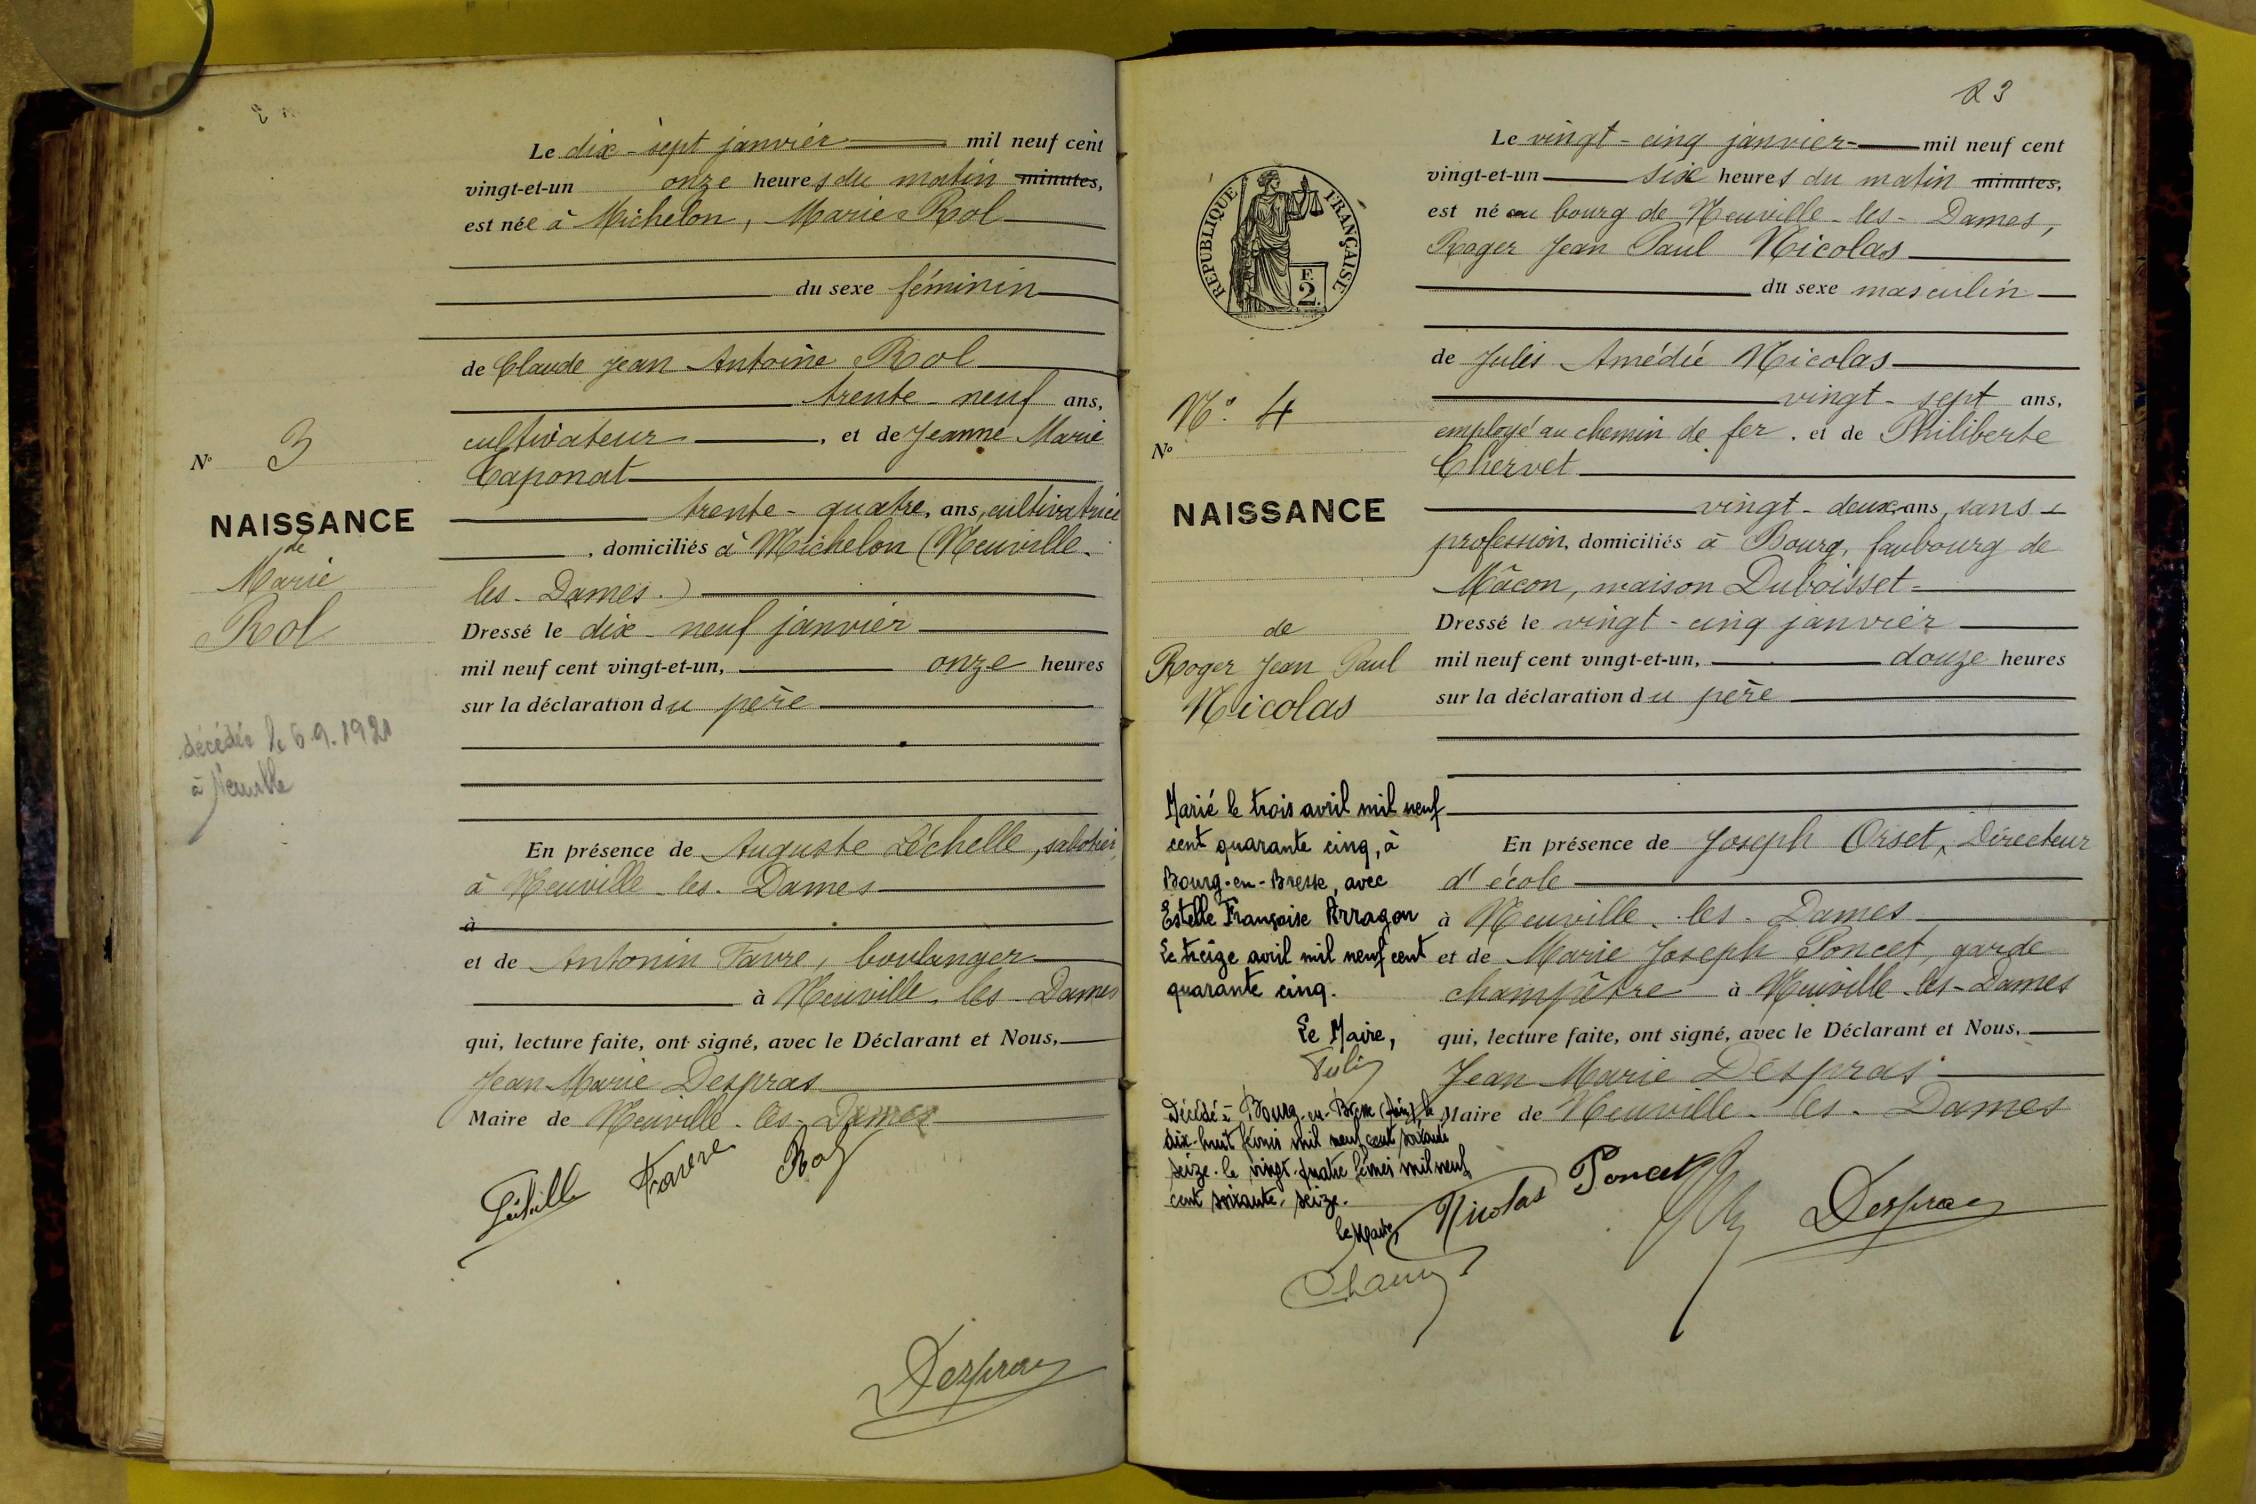 Le dix-sept janvier mil neuf cent
vingt-et-un onze heures du matin minutes,
est née à Michelon, Marie Rol
du sexe féminin
de Claude Jean Antoine Rol
trente-neuf ans,
cultivateur, et de Jeanne Marie
Caponat
trente-quatre, ans, cultivatrice
, domiciliés à Michelon (Neuville-
les-Dames.)
Dressé le dix-neuf janvier
mil neuf cent vingt-et-un, onze heures
sur la déclaration du père
En présence de Auguste Léchelle, sabotier
à Neuville-les-Dames
à
et de Antonin Favre, boulanger
à Neuville-les-Dames
qui, lecture faite, ont signé, avec le Déclarant et Nous,
Jean-Marie Despras
Maire de Neuville-les-Dames
Favre Rol
Despras
N° 3
NAISSANCE
de
Marie
Rol
décédée le 6.9.1921
à Neuville
23
RÉPUBLIQUE FRANÇAISE
F.
2.
Le vingt-cinq janvier mil neuf cent
vingt-et-un six heures du matin minutes,
est né au bourg de Neuville-les-Dames,
Roger Jean Paul Nicolas
du sexe masculin
de Jules Amédée Nicolas
vingt-sept ans,
employé au chemin de fer, et de Philiberte
Chervet
vingt-deux, ans, sans
profession, domiciliés à Bourg, faubourg de
Mâcon, maison Duboisset
Dressé le vingt-cinq janvier
mil neuf cent vingt-et-un, douze heures
sur la déclaration du père
En présence de Joseph Orset, Directeur
d'école
à Neuville-les-Dames
et de Marie Joseph Poncet, garde
champêtre à Neuville-les-Dames
qui, lecture faite, ont signé, avec le Déclarant et Nous,
Jean Marie Despras
Maire de Neuville-les-Dames
Nicolas Poncet Despras
N° 4
N°
NAISSANCE
de
Roger Jean Paul
Nicolas
Marié le trois avril mil neuf
cent quarante cinq, à
Bourg-en-Bresse, avec
Estelle Françoise Arragon
Le treize avril mil neuf cent
quarante cinq.
Le Maire,
Décédé à Bourg-en-Bresse (Ain), le
dix-huit février mil neuf cent soixante
seize. le vingt-quatre février mil neuf
cent soixante-seize.
le Maire,